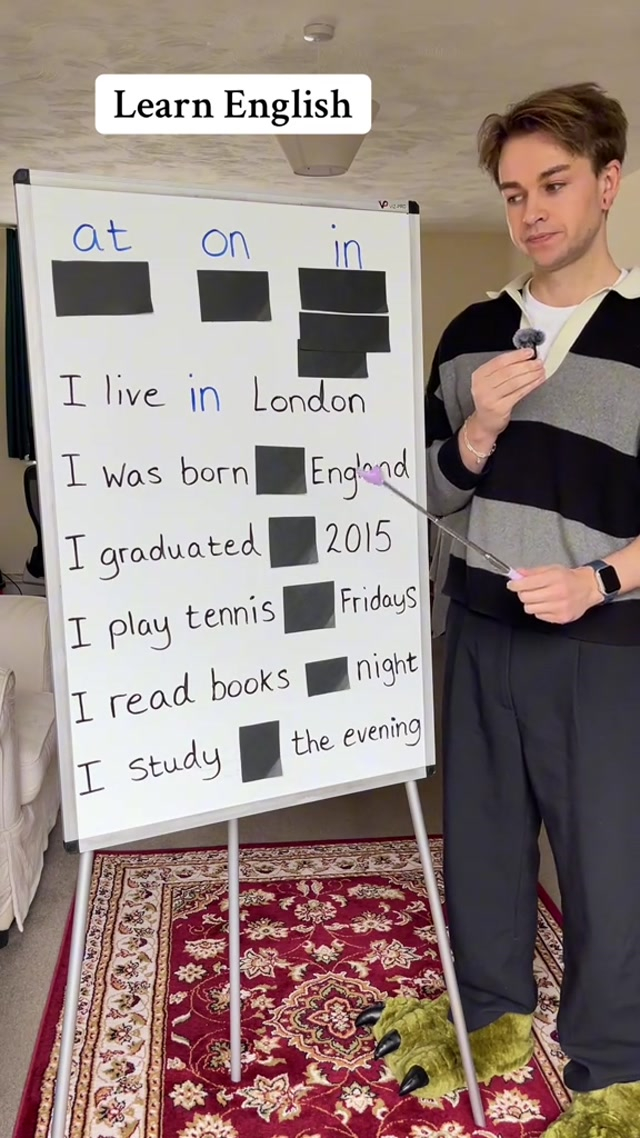 Learn English
VP VIZ-PRO
at on in
I live in London
I was born England
I graduated 2015
I play tennis Fridays
I read books night
I study the evening